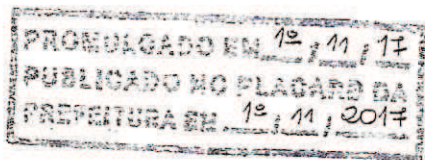 PROMULGADO EM 1º / 11 / 17
PUBLICADO NO PLACARD DA
PREFEITURA EM 1º / 11 / 2017